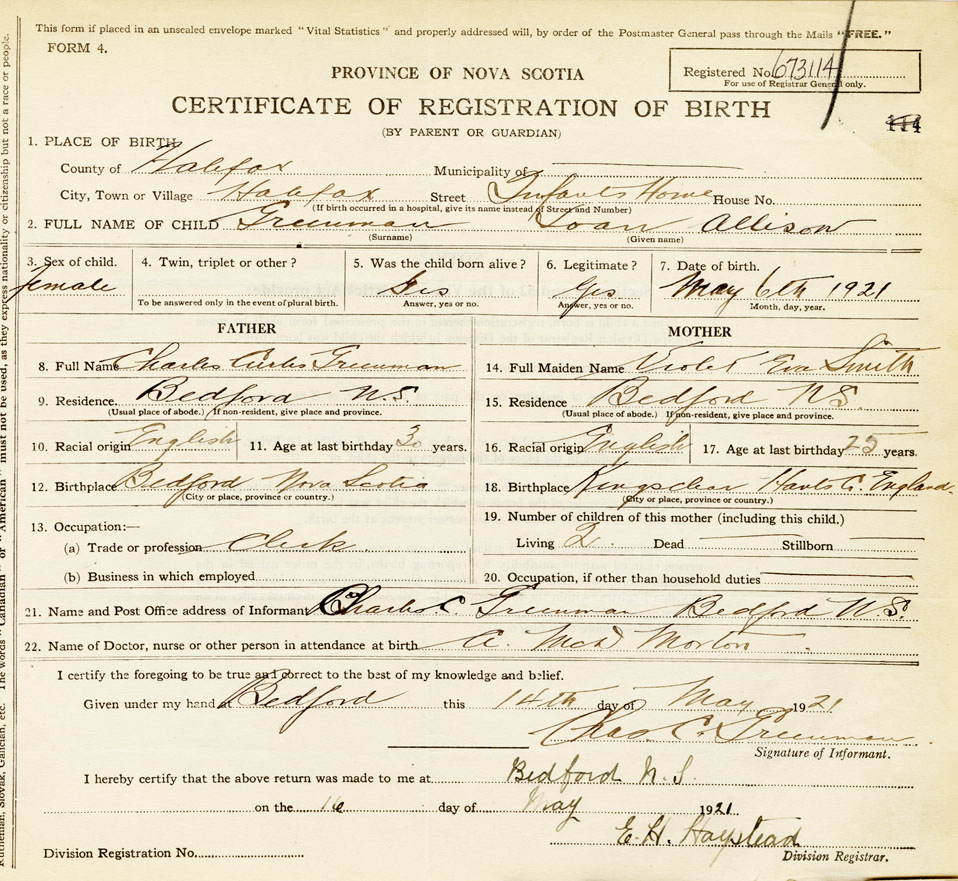 This form if placed in an unsealed envelope marked "Vital Statistics" and properly addressed will, by order of the Postmaster General pass through the Mails "FREE."
FORM 4.
PROVINCE OF NOVA SCOTIA
Registered No. 673114
For use of Registrar General only.
CERTIFICATE OF REGISTRATION OF BIRTH
114
(BY PARENT OR GUARDIAN)
1. PLACE OF BIRTH
County of Halifax Municipality of
City, Town or Village Halifax Street Infants Home House No.
(If birth occurred in a hospital, give its name instead of Street and Number)
2. FULL NAME OF CHILD Greenman Joan Allison
(Surname) (Given name)
3. Sex of child. 4. Twin, triplet or other? 5. Was the child born alive? 6. Legitimate? 7. Date of birth.
female Yes Yes May 6th 1921
To be answered only in the event of plural birth. Answer, yes or no. Answer, yes or no. Month, day, year.
FATHER MOTHER
8. Full Name Charles Curtis Greenman 14. Full Maiden Name Violet Eva Smith
9. Residence. Bedford N.S. 15. Residence Bedford N.S.
(Usual place of abode.) If non-resident, give place and province. (Usual place of abode.) If non-resident, give place and province.
10. Racial origin English 11. Age at last birthday 30 years. 16. Racial origin English 17. Age at last birthday 25 years.
12. Birthplace Bedford Nova Scotia 18. Birthplace Hants Co. England.
(City or place, province or country.) (City or place, province or country.)
13. Occupation:— 19. Number of children of this mother (including this child.)
(a) Trade or profession Clerk. Living 2. Dead Stillborn
(b) Business in which employed 20. Occupation, if other than household duties
21. Name and Post Office address of Informant Charles C. Greenman Bedford N.S.
22. Name of Doctor, nurse or other person in attendance at birth A. McD Morton
I certify the foregoing to be true and correct to the best of my knowledge and belief.
Given under my hand at Bedford this 14th day of May 1921
Chas C. Greenman
Signature of Informant.
I hereby certify that the above return was made to me at Bedford N.S.
on the 16 day of May 1921
E. H. Haystead
Division Registration No. Division Registrar.
Ruthenian, Slovak, Galician, etc. The words "Canadian" or "American" must not be used, as they express nationality or citizenship but not a race or people.